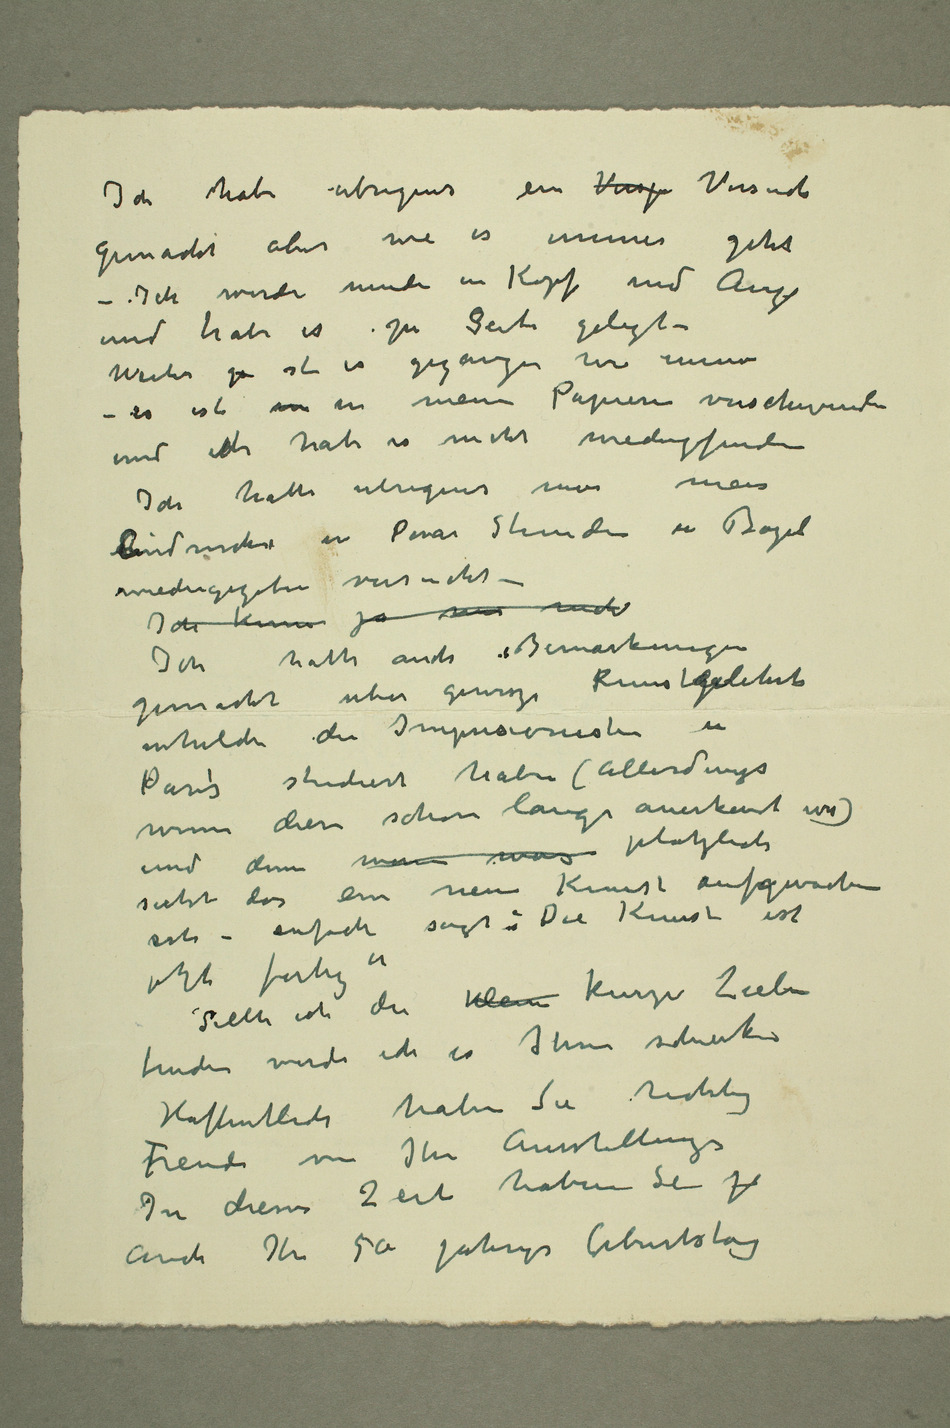 Ich habe übrigens ein Versuch
gemacht aber wie es immer geht
– Ich werde müde in Kopf und Auge
und habe es zu Seite gelegt –
Weiter ist es gegangen wie immer
– es ist in meine Papieren verschwunden
und ich habe es nicht wiedergefunden
Ich hatte übrigens nur mein
Eindrücke in Paar Stunden in
wiedergegeben versucht –
Ich kenne ja nur nicht
Ich hatte auch Bemerkungen
gemacht über gewisse Kunstgelehrte
welche die Impresionisten in
Paris studiert haben (allerdings
wenn diese schon lange anerkant war)
und dann plötzlich
sieht das ein neue Kunst aufgewachsen
ist – einfach sagt: Die Kunst ist
jetzt fertig"
Sollte ich die kleine kurze Zeilen
finden werde ich es Ihnen schicken
Hoffentlich haben Sie richtig
Freude von Ihr Ausstellung
In diese Zeit haben Sie ja
auch Ihr 50 jähriges Geburtstag